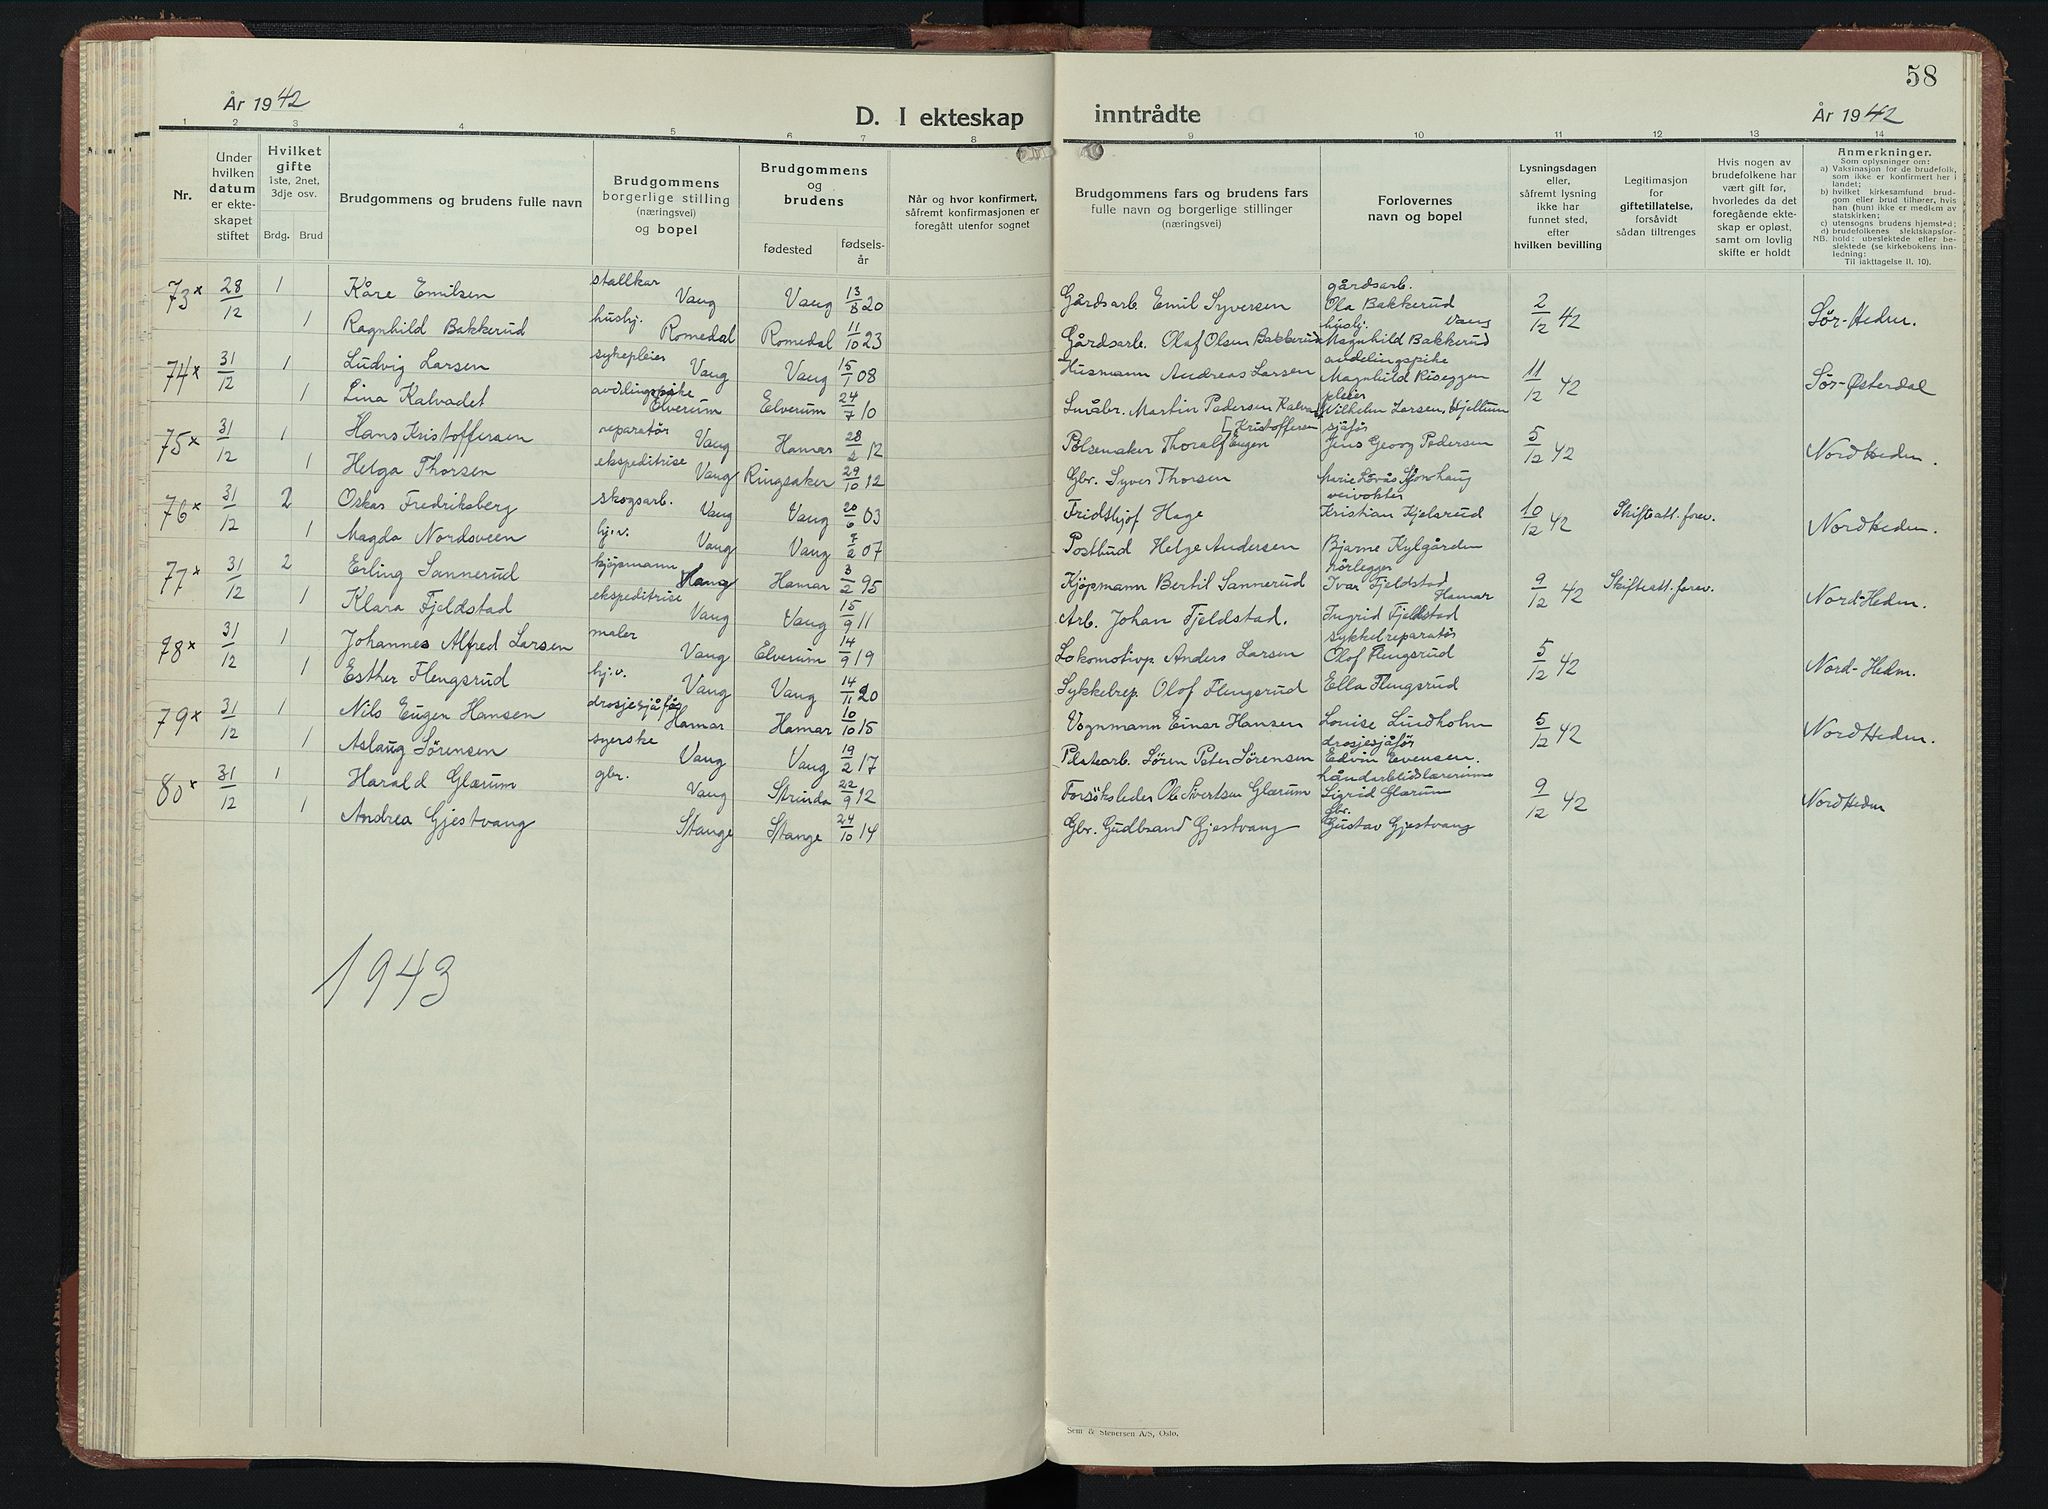 58
År 1942
D. I ekteskap inntrådte
År 1942
1 2 3 4 5 6 7 8 9 10 11 12 13 14
Nr.
Under hvilken datum er ekte- skapet stiftet
Hvilket gifte 1ste, 2net, 3dje osv.
Brdg. Brud
Brudgommens og brudens fulle navn
Brudgommens borgerlige stilling (næringsvei) og bopel
Brudgommens og brudens
fødested
fødsels- år
Når og hvor konfirmert, såfremt konfirmasjonen er foregått utenfor sognet
Brudgommens fars og brudens fars fulle navn og borgerlige stillinger (næringsvei)
Forlovernes navn og bopel
Lysningsdagen eller, såfremt lysning ikke har funnet sted, efter hvilken bevilling
Legitimasjon for giftetillatelse, forsåvidt sådan tiltrenges
Hvis nogen av brudefolkene har vært gift før, hvorledes da det foregående ekte- skap er opløst, samt om lovlig skifte er holdt
Anmerkninger.
Som oplysninger om:
a) Vaksinasjon for de brudefolk, som ikke er konfirmert her i landet;
b) hvilket kirkesamfund brud- gom eller brud tilhører, hvis han (hun) ikke er medlem av statskirken;
c) utensogns brudens hjemsted;
d) brudefolkenes slektskapsfor- hold: ubeslektede eller be- slektede (se kirkebokens inn- ledning;
NB.
Til iakttagelse II. 10).
73 x 28/12 1 Kåre Emilsen stallkar Vang Vang 13/8 20 Gårdsarb. Emil Syversen gårdsarb. Ola Bakkerud Vang 2/12 42 Sør-Hedm.
1 Ragnhild Bakkerud hushj. Romedal Romedal 11/10 23 Gårdsarb. Olaf Olsen Bakkerud hushj. Magnhild Bakkerud
74 x 31/12 1 Ludvig Larsen sykepleier Vang Vang 15/1 08 Husmann Andreas Larsen avdelingspike Magnhild Riseggen 11/12 42 Sør-Østerdal
1 Lina Kalvadet avdlingspike Elverum Elverum 24/7 10 Småbr. Martin Pedersen Kalvadet pleier Wilhelm Larsen, Hjellum
75 x 31/12 1 Hans Kristoffersen reparatør Vang Hamar 28/2 12 Pølsemaker Thoralf Eugen [Kristoffersen sjåfør Jens Georg Pedersen 5/12 42 Nord Hedm.
1 Helga Thorsen ekspeditrise Vang Ringsaker 29/10 12 Gbr. Syver Thorsen Marie Lovås
76 x 31/12 2 Oskar Fredriksberg skogsarb. Vang Vang 20/6 03 Fridthjof Hage veivokter Kristian Kjelsrud 10/12 42 Skifteatt. forev. Nord Hedm.
1 Magda Nordsveen hj.v. Vang Vang 7/2 07 Postbud Helge Andersen Bjarne Kylgården
77 x 31/12 2 Erling Sannerud kjøpmann Vang Hamar 3/2 95 Kjøpmann Bertil Sannerud rørlegger Ivar Fjeldstad Hamar 9/12 42 Skifteatt. forev. Nord-Hedm.
1 Klara Fjeldstad ekspeditrise Vang Vang 15/9 11 Arb. Johan Fjeldstad. Ingrid Fjeldstad
78 x 31/12 1 Johannes Alfred Larsen maler Vang Elverum 14/9 19 Lokomotivp. Anders Larsen sykkelreparatør Olof Flengsrud 5/12 42 Nord-Hedm.
1 Esther Flengsrud hj.v. Vang Vang 14/11 20 Sykkelrep. Olof Flengsrud Ella Flengsrud
79 x 31/12 1 Nils Eugen Hansen drosjesjåfør Hamar Hamar 10/10 15 Vognmann Einar Hansen Louise Lindholm 5/12 42 Nord Hedm.
1 Aslaug Sørensen syerske Vang Vang 19/2 17 Platearb. Søren Peter Sørensen drosjesjåfør Edvin Evensen.
80 x 31/12 1 Harald Glærum gbr. Vang Strinda 22/9 12 Forsøksleder Ole Sivertsen Glærum håndarbeidslærerinne Sigrid Glærum 9/12 42 Nord Hedm
1 Andrea Gjestvang Stange Stange 24/10 14 Gbr. Gudbrand Gjestvang Gbr. Gustav Gjestvang
1943
Sem & Stenersen A/S, Oslo.